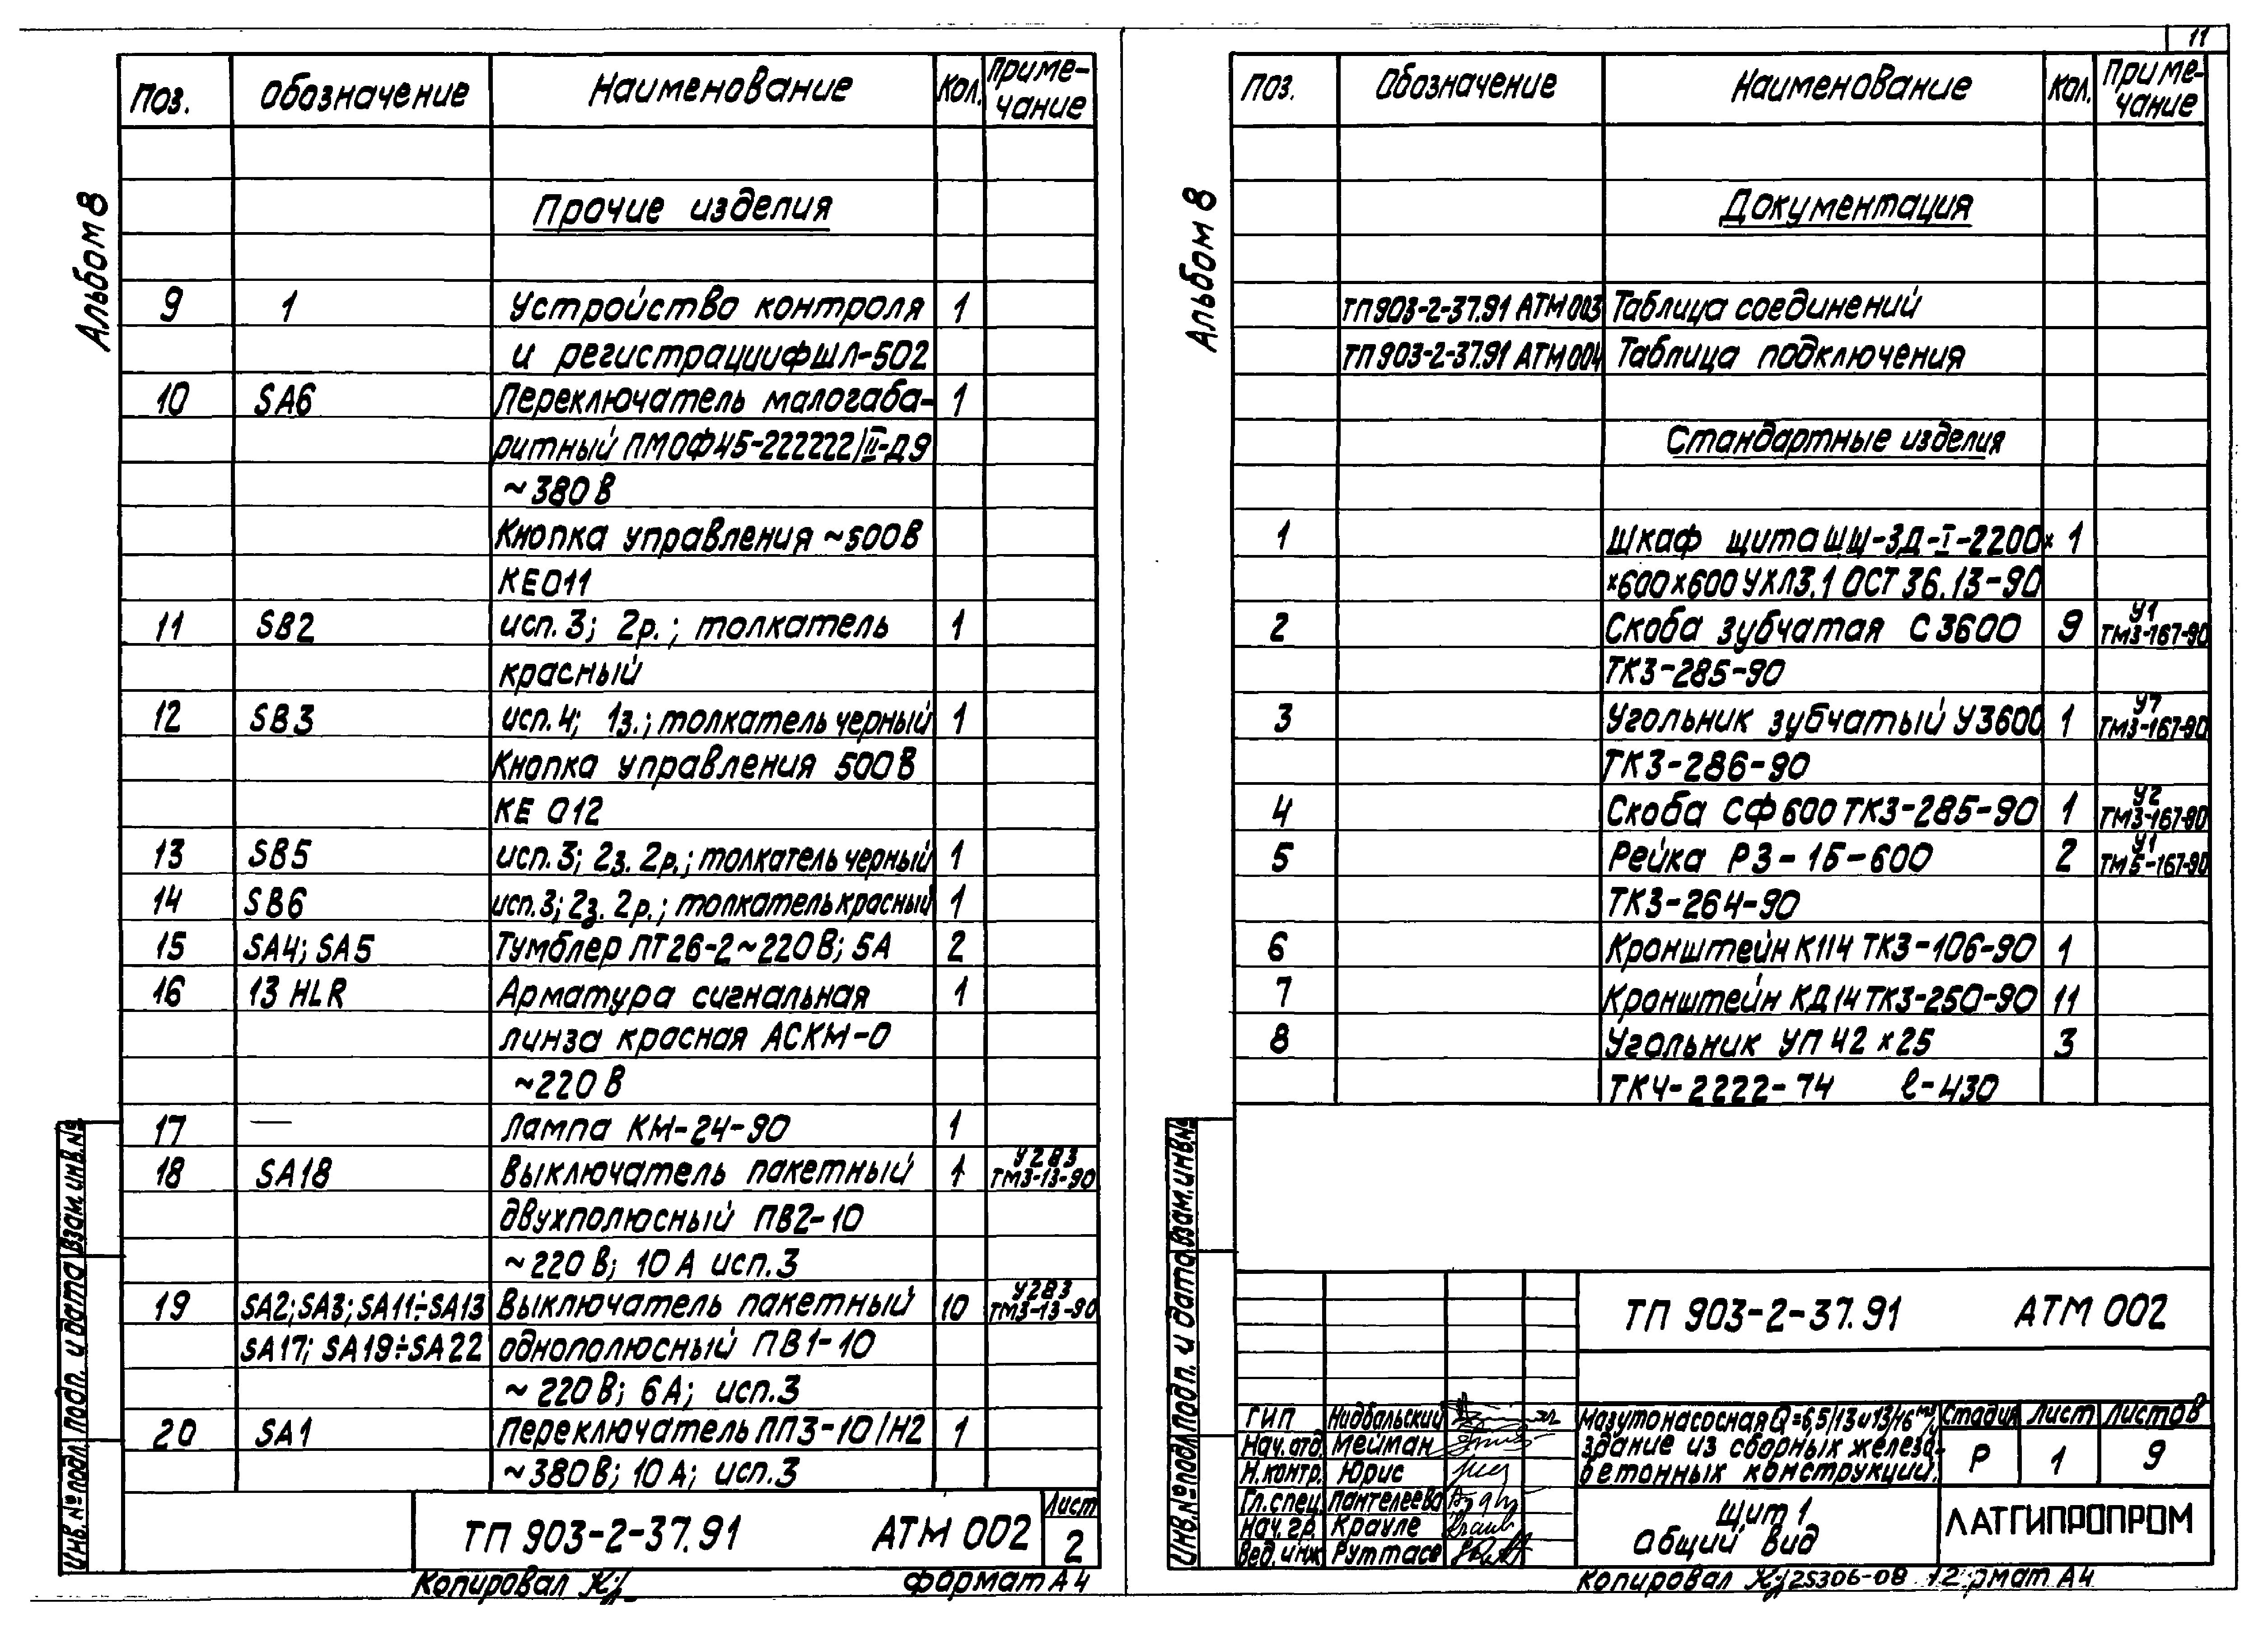 11
Альбом 8
Поз. Обозначение Наименование Кол. Приме-
чание
Прочие изделия
9 1 Устройство контроля 1
и регистрации ФЩЛ-502
10 SA6 Переключатель малогаба- 1
ритный ПМОФ45-222222/II-Д9
~380В
Кнопка управления ~500В
КЕ011
11 SB2 исп. 3; 2р.; толкатель 1
красный
12 SB3 исп. 4; 1з.; толкатель черный 1
Кнопка управления 500В
КЕ 012
13 SB5 исп. 3; 2з. 2р.; толкатель черный 1
14 SB6 исп. 3; 2з. 2р.; толкатель красный 1
15 SA4; SA5 Тумблер ПТ26-2~220В; 5А 2
16 13 HLR Арматура сигнальная 1
линза красная АСКМ-0
~220В
17 — Лампа КМ-24-90 1
18 SA18 Выключатель пакетный 1 У283
ТМ3-13-90
двухполюсный ПВ2-10
~220В; 10А исп. 3
19 SA2; SA3; SA11÷SA13 Выключатель пакетный 10 У283
ТМ3-13-90
SA17; SA19÷SA22 однополюсный ПВ1-10
~220В; 6А; исп. 3
20 SA1 Переключатель ПП3-10/Н2 1
~380В; 10А; исп. 3
Инв. № подл. Подп. и дата Взам. инв. №
ТП 903-2-37.91 АТМ 002
Лист
2
Копировал
Формат А4
Альбом 8
Поз. Обозначение Наименование Кол. Приме-
чание
Документация
ТП903-2-37.91 АТМ003 Таблица соединений
ТП903-2-37.91 АТМ004 Таблица подключения
Стандартные изделия
1 Шкаф щита ЩЩ-3Д-I-2200× 1
×600×600 УХЛ3.1 ОСТ 36.13-90
2 Скоба зубчатая С3600 9 У1
ТМ3-167-90
ТК3-285-90
3 Угольник зубчатый У3600 1 У7
ТМ3-167-90
ТК3-286-90
4 Скоба СФ600 ТК3-285-90 1 У2
ТМ3-167-90
5 Рейка Р3-1Б-600 2 У1
ТМ5-167-90
ТК3-264-90
6 Кронштейн К114 ТК3-106-90 1
7 Кронштейн КД14 ТК3-250-90 11
8 Угольник УП 42×25 3
ТК4-2222-74 ℓ-430
Инв. № подл. Подп. и дата Взам. инв. №
ТП 903-2-37.91 АТМ 002
ГИП Нидбальский
Нач. отд. Мейман
Н. контр. Юрис
Гл. спец. Пантелеева
Нач. гр. Крауле
Вед. инж Руттасе
Мазутонасосная Q=6,5/13 и 13/16
здание из сборных железо-
бетонных конструкций.
Стадия Лист Листов
Р 1 9
Щит 1
Общий вид
ЛАТГИПРОПРОМ
Копировал 25306-08 12 рмат А4